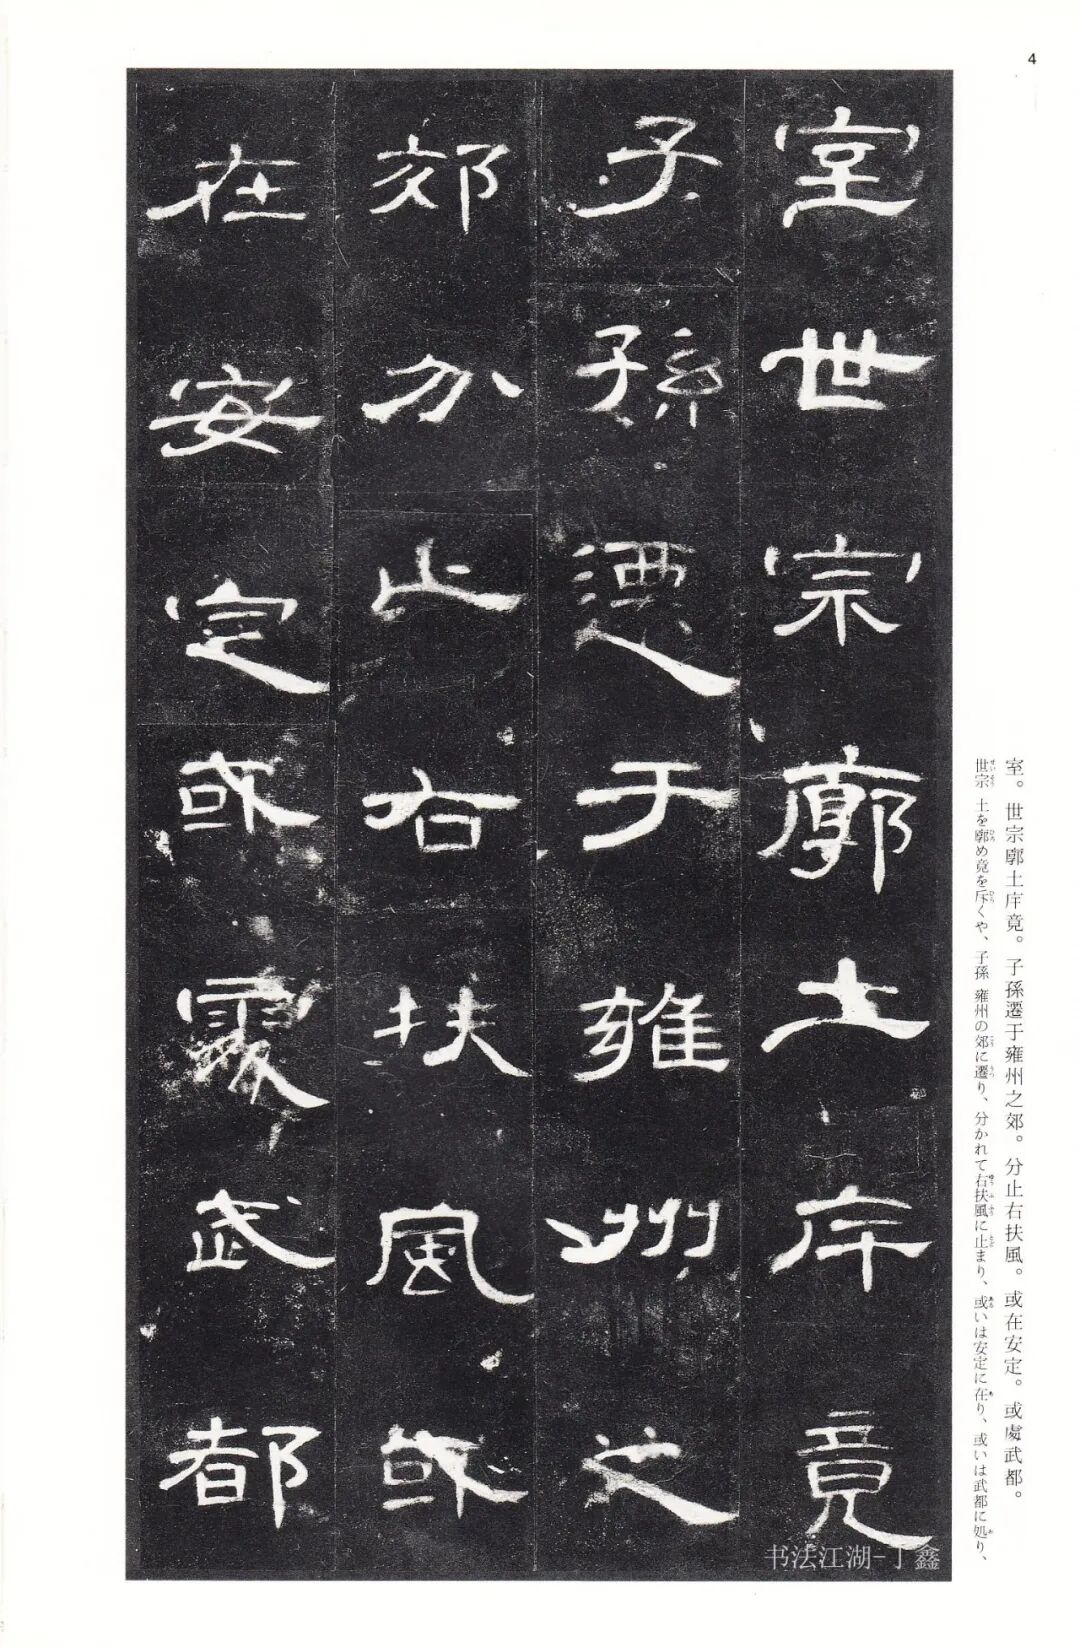 4
室世宗廓土庠竟
子孫遷于雍州之
郊分止右扶風或
在安定或處武都
室。世宗廓土庠竟。子孫遷于雍州之郊。分止右扶風。或在安定。或處武都。
世宗 土を廓め竟を斥くや、子孫 雍州の郊に遷り、分かれて右扶風に止まり、或いは安定に在り、或いは武都に処り、
书法江湖-丁鑫